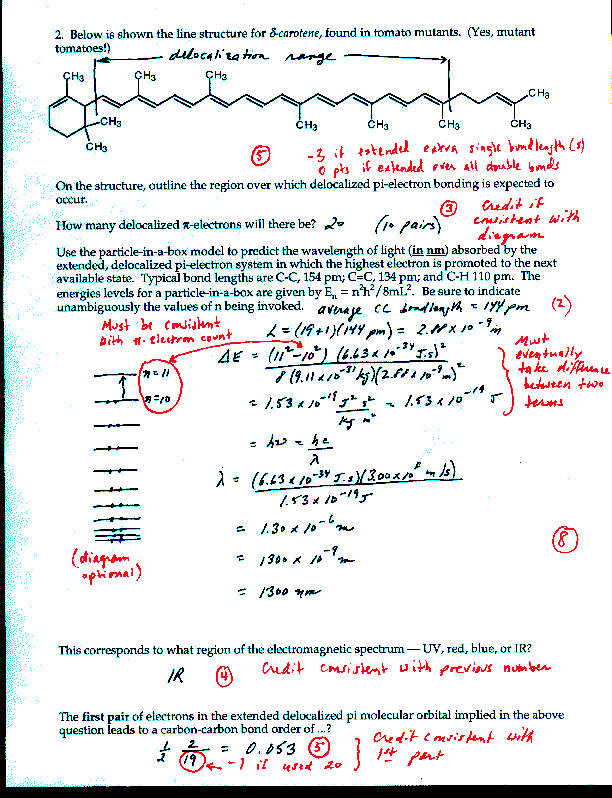 2. Below is shown the line structure for δ-carotene, found in tomato mutants. (Yes, mutant
tomatoes!)
delocalization range
CH3
CH3
CH3
CH3
CH3
CH3
CH3
CH3
CH3
CH3
(5) -3 if extended extra single bond length(s)
0 pts if extended over all double bonds
On the structure, outline the region over which delocalized pi-electron bonding is expected to
occur.
(3) Credit if
consistent with
diagram
How many delocalized π-electrons will there be? 20 (10 pairs)
Use the particle-in-a-box model to predict the wavelength of light (in nm) absorbed by the
extended, delocalized pi-electron system in which the highest electron is promoted to the next
available state. Typical bond lengths are C-C, 154 pm; C=C, 134 pm; and C-H 110 pm. The
energies levels for a particle-in-a-box are given by En = n²h²/8mL². Be sure to indicate
unambiguously the values of n being invoked. average CC bond length = 144 pm (2)
Must be consistent
with π-electron count
L = (19+1)(144 pm) = 2.88 x 10⁻⁹ m
ΔE = (11²-10²) (6.63 x 10⁻³⁴ J.s)²
8 (9.11 x 10⁻³¹ kg)(2.88 x 10⁻⁹ m)²
Must
eventually
take difference
between two
terms
n=11
n=10
= 1.53 x 10⁻¹⁹ J² s² / kg m² = 1.53 x 10⁻¹⁹ J
= hν = hc / λ
λ = (6.63 x 10⁻³⁴ J.s)(3.00 x 10⁸ m/s)
1.53 x 10⁻¹⁹ J
= 1.30 x 10⁻⁶ m
(diagram
optional)
= 1300 x 10⁻⁹ m
(8)
= 1300 nm
This corresponds to what region of the electromagnetic spectrum — UV, red, blue, or IR?
IR (4) Credit consistent with previous number
The first pair of electrons in the extended delocalized pi molecular orbital implied in the above
question leads to a carbon-carbon bond order of ...?
1/2 2/19 = 0.053 (5)
-1 if used 20
Credit consistent with
1st part